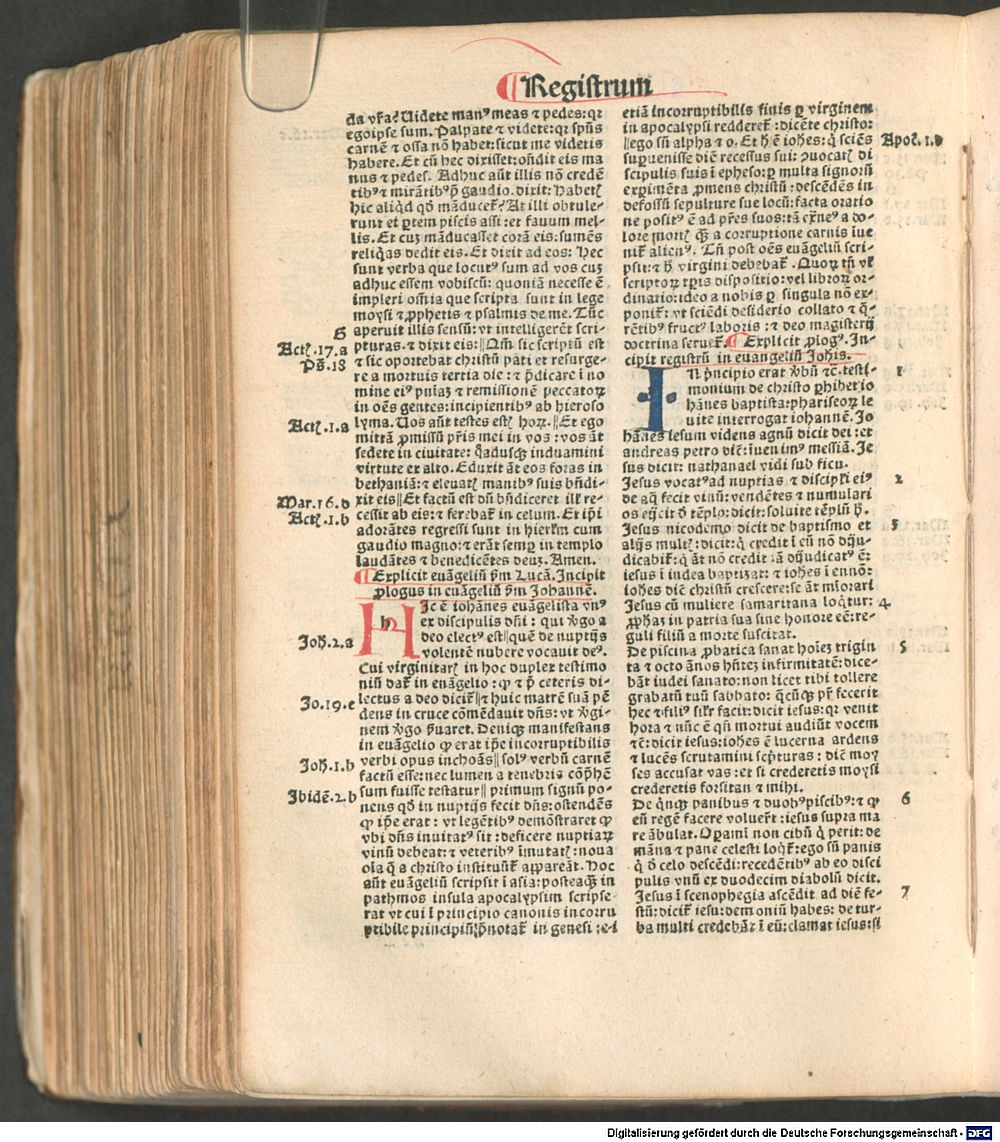 Registrum
da vr̃a? Uidete man⁹ meas ⁊ pedes: qr
egoipse sum. Palpate ⁊ videte: qr spũs
carnẽ ⁊ ossa nõ habet: sicut me videtis
habere. Et cũ hec dixisset: oñdit eis ma
nus ⁊ pedes. Adhuc aũt illis nõ credẽ
tib⁹ ⁊ mirãtib⁹ p̃ gaudio. dixit: Habetꝭ
hic aliqd qđ mãducet̃? At illi obtule-
runt ei ꝑtem piscis assi: et fauum mel-
lis. Et cuʒ mãducasset corã eis: sumẽs
reliqas dedit eis. Et dixit ad eos: Hec
sunt verba que locut⁹ sum ad vos cuʒ
adhuc essem vobiscũ: quoniã necesse ẽ
impleri om̃ia que scripta sunt in lege
moysi ⁊ ꝓphetis ⁊ psalmis de me. Tũc
aperuit illis sensũ: vt intelligerẽt scri-
pturas. ⁊ dixit eis: || Qm̃ sic scriptũ est
⁊ sic oportebat christũ pati et resurge-
re a mortuis tertia die: ⁊ p̃dicare ĩ no
mine ei⁹ pn̄iaʒ ⁊ remissionẽ peccatoꝝ
in oẽs gentes: incipientib⁹ ab hieroso
lyma. Uos aũt testes estꝭ hoꝝ. || Et ego
mittã ꝓmissũ pr̃is mei in vos: vos ãt
sedete in ciuitate: q̃adusqʒ induamini
virtute ex alto. Eduxit ãt eos foras in
bethaniã: ⁊ eleuatꝭ manib⁹ suis bñdi-
xit eis || Et factũ est dũ bñdiceret ill̃ re-
cessit ab eis: ⁊ ferebat̃ in celum. Et ip̃i
adorãtes regressi sunt in hierl̃m cum
gaudio magno: ⁊ erãt semꝑ in templo
laudãtes ⁊ benedicẽtes deuʒ. Amen.
¶ Explicit euãgeliũ ẜm Lucã. Incipit
ꝓlogus in euãgeliũ ẜm Johannẽ.
HIc ẽ iohãnes euãgelista vn⁹
ex discipulis dñi: qui ꝟgo a
deo elect⁹ est || quẽ de nuptijs
volentẽ nubere vocauit de⁹.
Cui virginitatꝭ in hoc duplex testimo
niũ dat̃ in euãgelio: ꝙ ⁊ p̃ ceteris di-
lectus a deo dicit̃ || ⁊ huic matrẽ suã pẽ
dens in cruce cõmẽdauit dñs: vt ꝟgi-
nem ꝟgo ẜuaret. Deniqʒ manifestans
in euãgelio ꝙ erat ip̃e incorruptibilis
verbi opus inchoãs || sol⁹ verbũ carnẽ
factũ esse: nec lumen a tenebris cõp̃hẽ
sum fuisse testatur || primum signũ po-
nens qđ in nuptijs fecit dñs: ostendẽs
ꝙ ip̃e erat: vt legẽtib⁹ demõstraret ꝙ
vbi dñs inuitat⁹ sit: deficere nuptiaꝝ
vinũ debeat: ⁊ veterib⁹ ĩmutatꝭ: noua
oĩa q̃ a christo instituũt̃ appareãt. Hoc
aũt euãgeliũ scripsit ĩ asia: posteaqʒ in
pathmos insula apocalypsim scripse-
rat vt cui ĩ principio canonis incorru
ptibile principiũ p̃notat̃ in genesi: e-i
G
Actꝭ.17.a
Ps̃.18
Actꝭ.1.a
Mar.16.d
Actꝭ.1.b
Joh.2.a
Jo.19.e
Joh.1.b
Ibidẽ.2.b
etiã incorruptibilis finis ꝑ virginem
in apocalypsi redderet̃: dicẽte christo:
|| ego sũ alpha ⁊ o. Et h̃ ẽ iohẽs: q̃ sciẽs
suꝑuenisse diẽ recessus sui: ꝓuocatꝭ di
scipulis suis ĩ epheso: ꝑ multa signoꝝ
exꝑimẽta ꝓmens christũ: descẽdẽs in
defossũ sepulture sue locũ: facta oratio
ne posit⁹ ẽ ad pr̃es suos: tã extr̃ne⁹ a do-
lore mortꝭ q̃ʒ a corruptione carnis ĩue
nit̃ alien⁹. Tñ post oẽs euãgeliũ scri-
psit: ⁊ h̃ virgini debebat̃. Quoꝝ tñ vl̃
scriptoꝝ tꝑis dispositio: vel libroꝝ or-
dinatio: ideo a nobis ꝑ singula nõ ex-
ponit̃: vt sciẽdi desiderio collato ⁊ q̃-
rẽtib⁹ fruct⁹ laboris: ⁊ deo magisterij
doctrina seruet̃. ¶ Explicit ꝓlog⁹. In-
cipit registrũ in euangeliũ Johis.
IN p̃ncipio erat ꝟbũ ⁊c̃. testi-
monium de christo ꝑhibet io
hãnes baptista: phariseoꝝ le
uite interrogãt iohannẽ. Jo
hãnes iesum videns agnũ dicit dei: et
andreas petro diẽ: inuenim⁹ messiã. Je
sus dicit: nathanael vidi sub ficu.
Jesus vocat⁹ ad nuptias ⁊ discipl̃i ei⁹
de aq̃ fecit vinũ: vendẽtes ⁊ numulari
os eijcit đ tẽplo: dicit: soluite tẽplũ h̃.
Jesus nicodemo dicit de baptismo et
alijs multꝭ: dicit: q̃ credit ĩ eũ nõ dĳu-
dicabit̃: q̃ ãt nõ credit iã dijudicat⁹ ẽ:
iesus ĩ iudea baptizat: ⁊ iohẽs ĩ ennõ:
iohẽs diẽ christũ crescere: se ãt mĩorari
Jesus cũ muliere samaritana loqt̃ur:
ꝓp̃haʒ in patria sua sine honore eẽ: re-
guli filiũ a morte suscitat.
De piscina ꝓbatica sanat hoĩeʒ trigin
ta ⁊ octo ãnos hñtẽʒ infirmitatẽ: dice-
bãt iudei sanato: non licet tibi tollere
grabatũ tuũ sabbato: q̃cũqʒ pr̃ fecerit
hec ⁊ fili⁹ sil̃r facit: dicit iesus: qr venit
hora ⁊ nũc ẽ qñ mortui audiũt vocem
⁊c̃: dicit iesus: iohẽs ẽ lucerna ardens
⁊ lucẽs scrutamini scp̃turas: diẽ moy
ses accusat vas: et si crederetis moysi
crederetis forsitan ⁊ mihi.
De q̃nqʒ panibus ⁊ duob⁹ piscib⁹: ⁊ ꝙ
eũ regẽ facere voluer̃t: iesus supra ma
re ãbulat. Oꝑamĩ non cibũ q̃ perit: de
mãna ⁊ pane celesti loqt̃: ego sũ panis
q̃ đ celo descẽdi: recedẽtib⁹ ab eo disci
pulis vnũ ex duodecim diabolũ dicit.
Jesus ĩ scenophegia ascẽdit ad diẽ fe-
stũ: dicit̃ iesu: demoniũ habes: de tur-
ba multi credebãt ĩ eũ: clamat iesus: si
Apoc̃.1.b
1
2
3
4
5
6
7
Digitalisierung gefördert durch die Deutsche Forschungsgemeinschaft - DFG